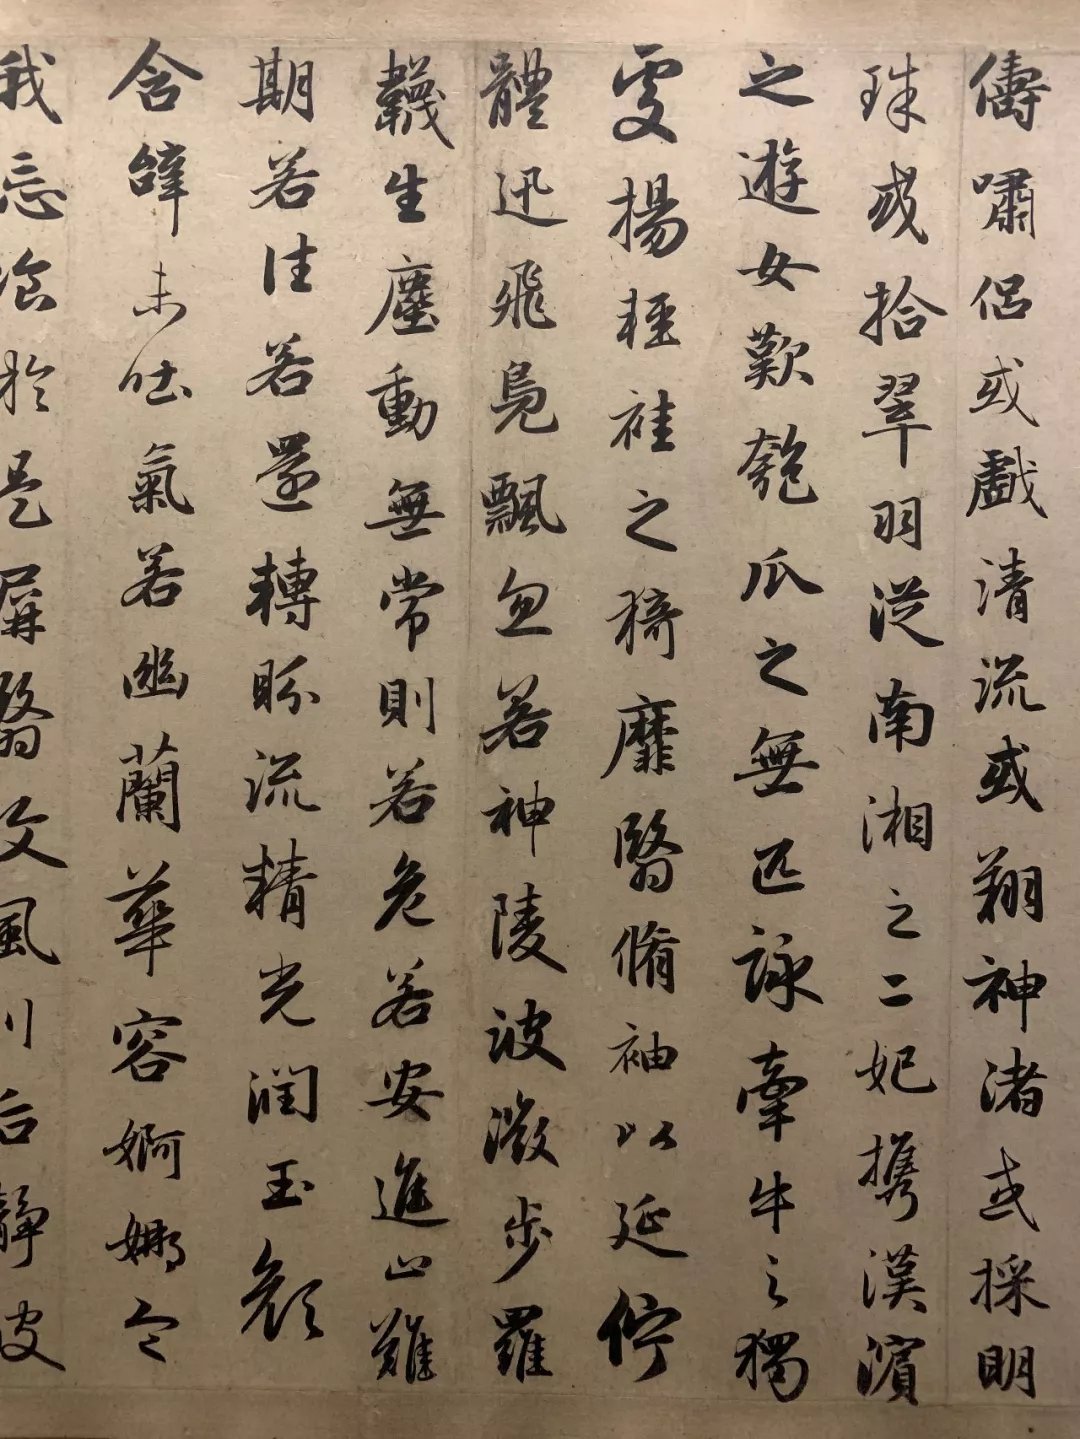 儔嘯侶或戲清流或翔神渚或採明
珠或拾翠羽從南湘之二妃攜漢濱
之遊女歎匏瓜之無匹詠牽牛之獨
處揚輕袿之猗靡翳脩袖以延佇
體迅飛鳧飄忽若神陵波微步羅
韈生塵動無常則若危若安進止難
期若往若還轉眄流精光潤玉顏
含辭未吐氣若幽蘭華容婀娜令
我忘飡於是屏翳收風川后靜波